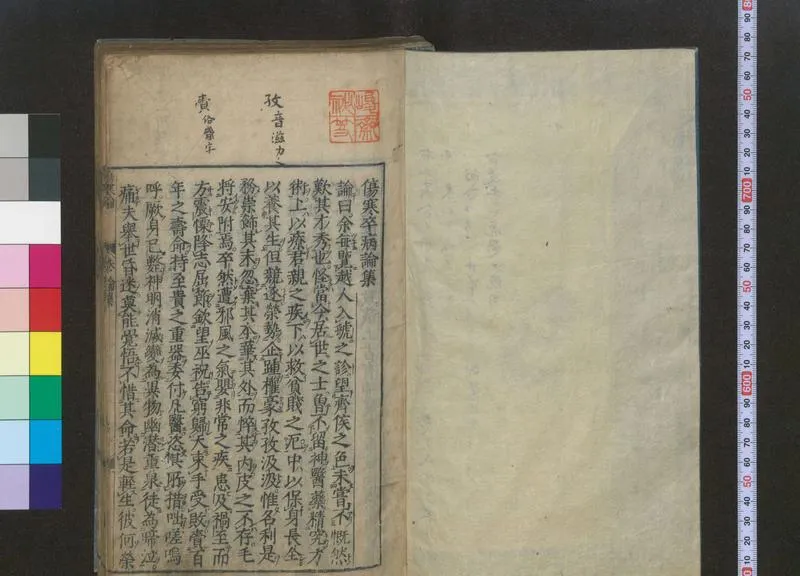 孜音滋力
賫俗齎字
傷寒卒病論集
論曰余每覽越人入虢之診望齊侯之色未嘗不慨然
歎其才秀也怪當今居世之士曾不留神醫藥精究方
術上以療君親之疾下以救貧賤之厄中以保身長全
以養其生但競逐榮勢企踵權豪孜孜汲汲惟名利是
務崇飾其末忽棄其本華其外而悴其內皮之不存毛
將安附焉卒然遭邪風之氣嬰非常之疾患及禍至而
方震慄降志屈節欽望巫祝告窮歸天束手受敗賫百
年之壽命持至貴之重器委付凡醫恣其所措咄嗟嗚
呼厥身已斃神明消滅變為異物幽潛重泉徒為啼泣
痛夫舉世昏迷莫能覺悟不惜其命若是輕生彼何榮
700
600